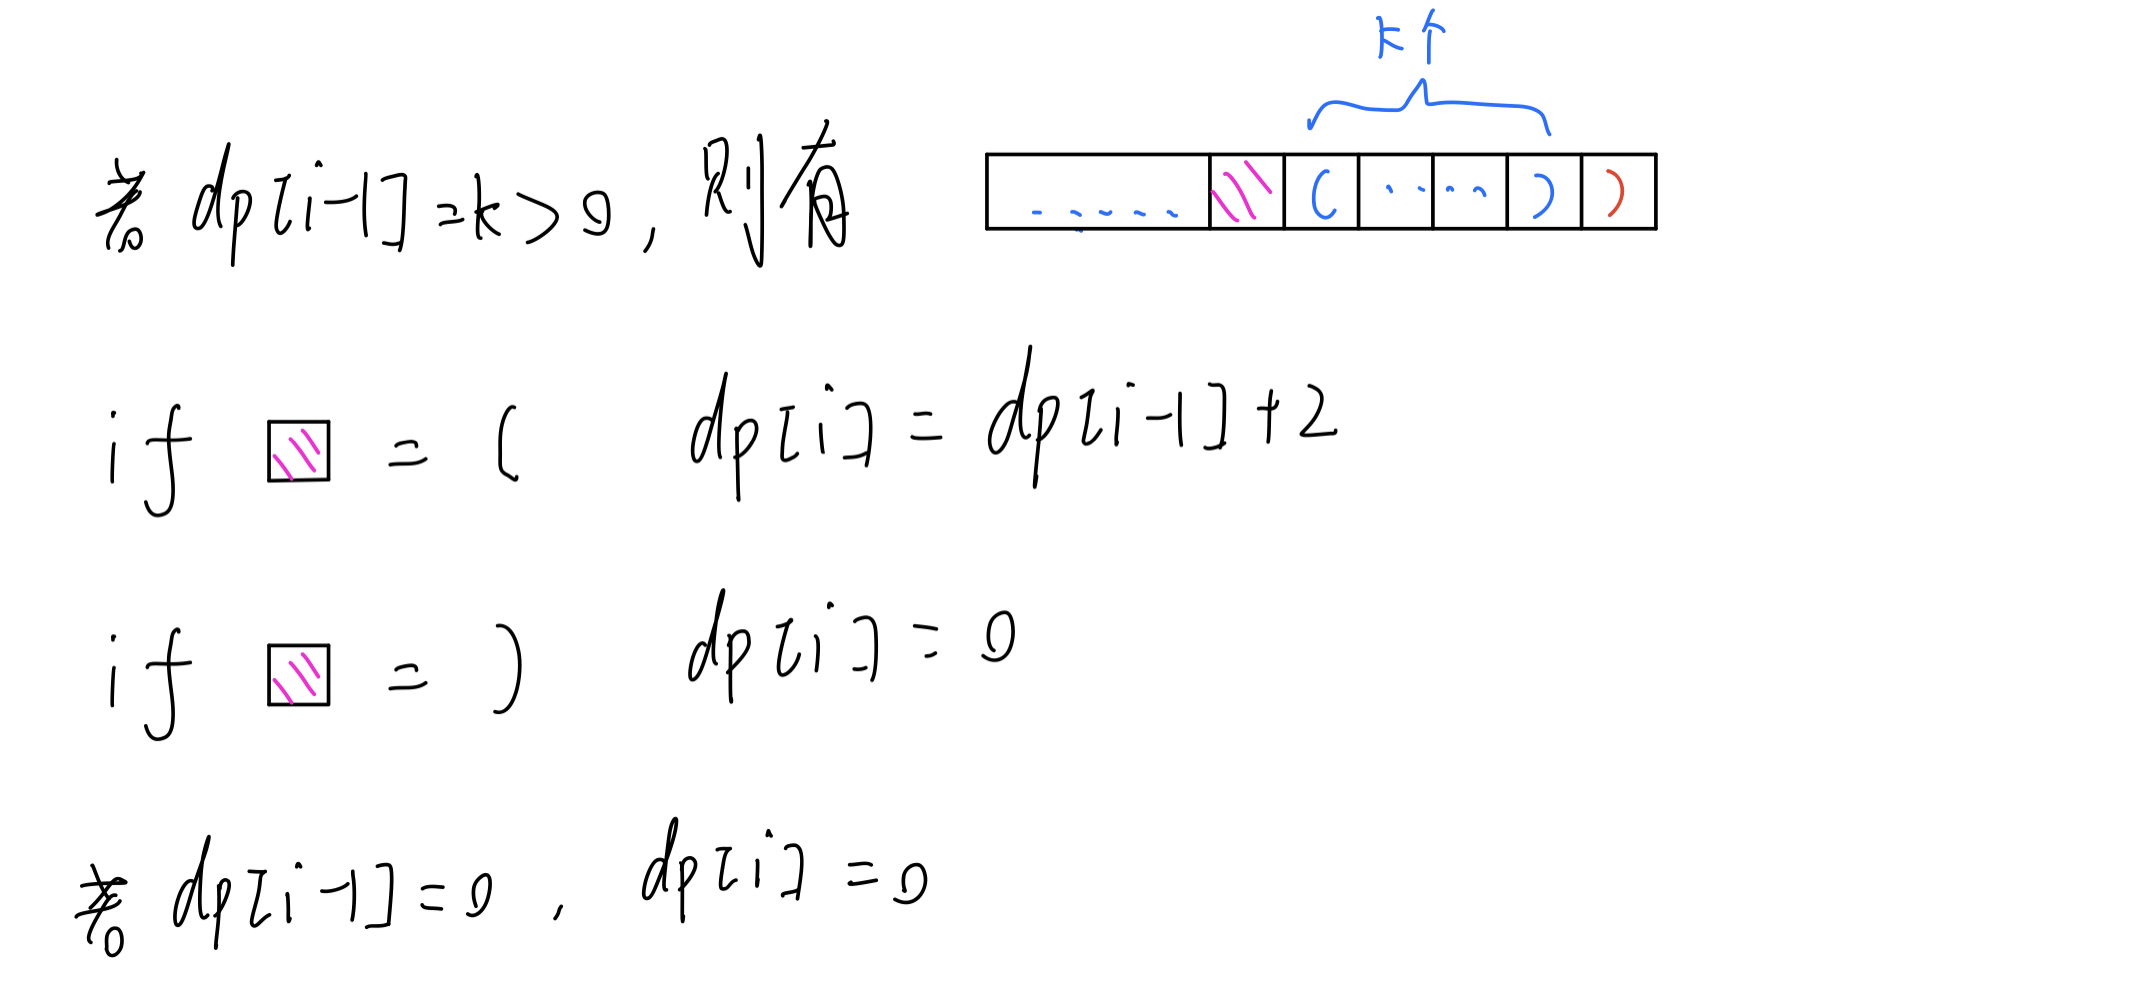 k个
若 dp[i-1]=k>0, 则有 ..... ( ..... ) )
if = ( dp[i] = dp[i-1]+2
if = ) dp[i] = 0
若 dp[i-1]=0, dp[i]=0